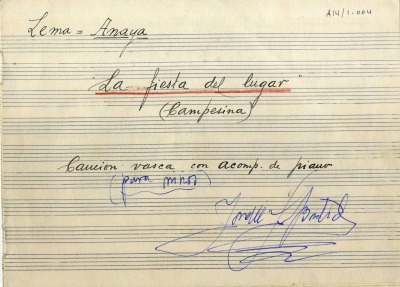 A14/1-004
Lema = Anaya
"La fiesta del lugar"
(Campesina)
Canción vasca con acomp. de piano
(para niños)